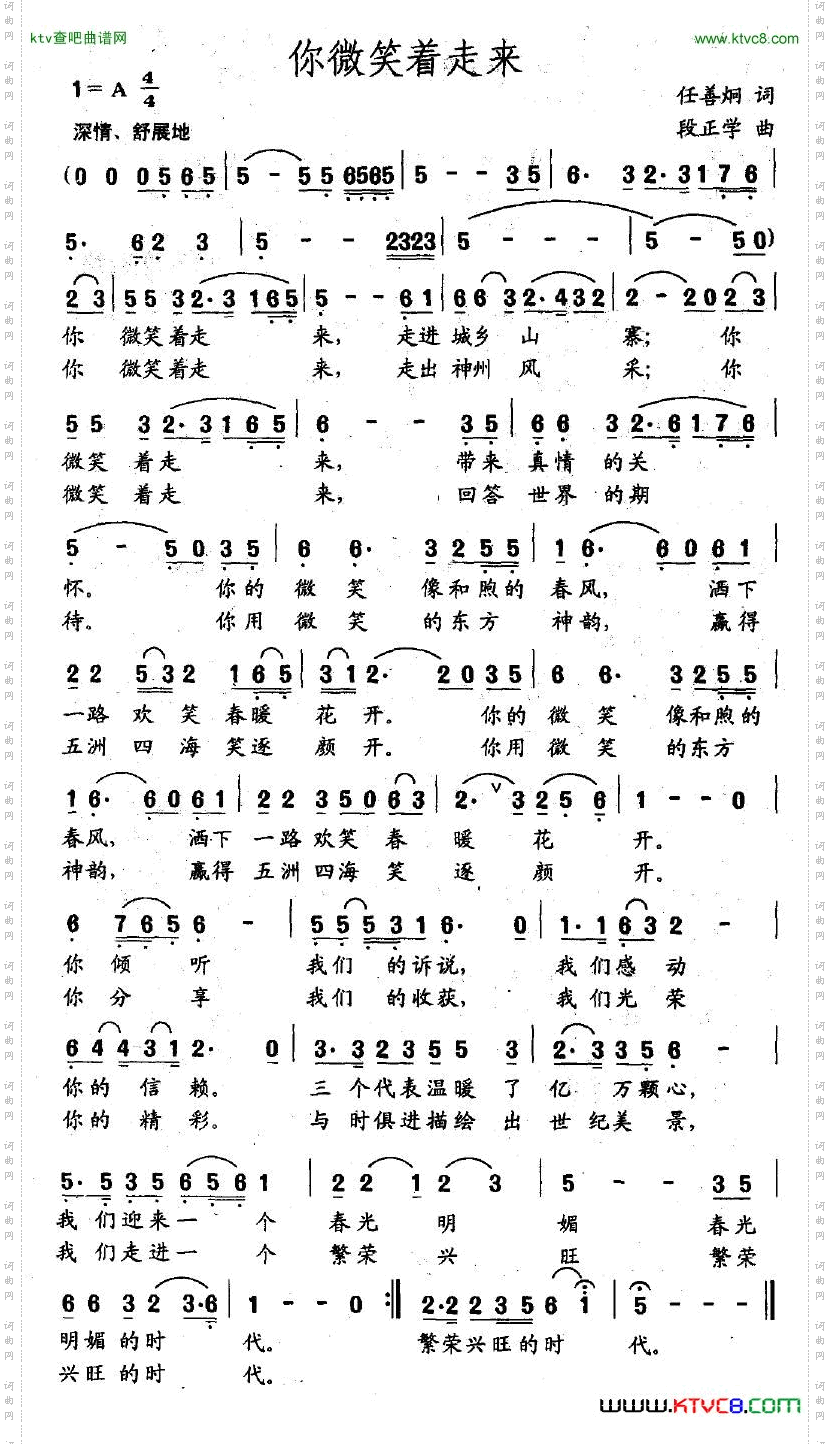 ktv查吧曲谱网
www.ktvc8.com
你微笑着走来
1=A 4/4
任善炯 词
深情、舒展地
段正学 曲
(0 0 0 5 6 5 | 5 - 5 5 6565 | 5 - - 3 5 | 6· 3 2·3 1 7 6 |
5· 6 2 3 | 5 - - 2323 | 5 - - - | 5 - 5 0)
2 3 | 5 5 3 2·3 1 6 5 | 5 - - 6 1 | 6 6 3 2·4 3 2 | 2 - 2 0 2 3 |
你 微笑着走 来， 走进 城乡 山 寨； 你
你 微笑着走 来， 走出 神州 风 采； 你
5 5 3 2·3 1 6 5 | 6 - - 3 5 | 6 6 3 2·6 1 7 6 |
微笑 着走 来， 带来 真情 的关
微笑 着走 来， 回答 世界 的期
5 - 5 0 3 5 | 6 6· 3 2 5 5 | 1 6· 6 0 6 1 |
怀。 你的 微 笑 像和煦的 春风， 洒下
待。 你用 微 笑 的东方 神韵， 赢得
2 2 5 3 2 1 6 5 | 3 1 2· 2 0 3 5 | 6 6· 3 2 5 5 |
一路 欢 笑 春暖 花 开。 你的 微 笑 像和煦的
五洲 四 海 笑逐 颜 开。 你用 微 笑 的东方
1 6· 6 0 6 1 | 2 2 3 5 0 6 3 | 2· 3 2 5 6 | 1 - - 0 |
春风， 洒下 一路 欢笑 春 暖 花 开。
神韵， 赢得 五洲 四海 笑 逐 颜 开。
6 7 6 5 6 - | 5 5 5 3 1 6· 0 | 1·1 6 3 2 - |
你 倾 听 我们 的诉说， 我们感 动
你 分 享 我们 的收获， 我们光 荣
6 4 4 3 1 2· 0 | 3·3 2 3 5 5 3 | 2·3 3 5 6 - |
你的 信 赖。 三 个代表温暖 了 亿 万颗心，
你的 精 彩。 与 时俱进描绘 出 世 纪美 景，
5·5 3 5 6 5 6 1 | 2 2 1 2 3 | 5 - - 3 5 |
我 们迎来一 个 春光 明 媚 春光
我 们走进一 个 繁荣 兴 旺 繁荣
6 6 3 2 3·6 | 1 - - 0 :| 2·2 2 3 5 6 1 | 5 - - - ‖
明媚 的时 代。 繁荣兴旺的时 代。
兴旺 的时 代。
www.KTVC8.com